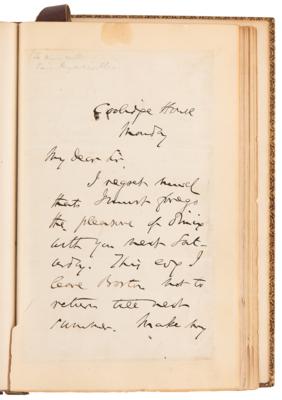 Coolidge House
Monday
My dear Sir.
I regret much
that I must forego
the pleasure of dining
with you next Sat-
urday. This evg I
leave Boston not to
return till next
summer. Make my